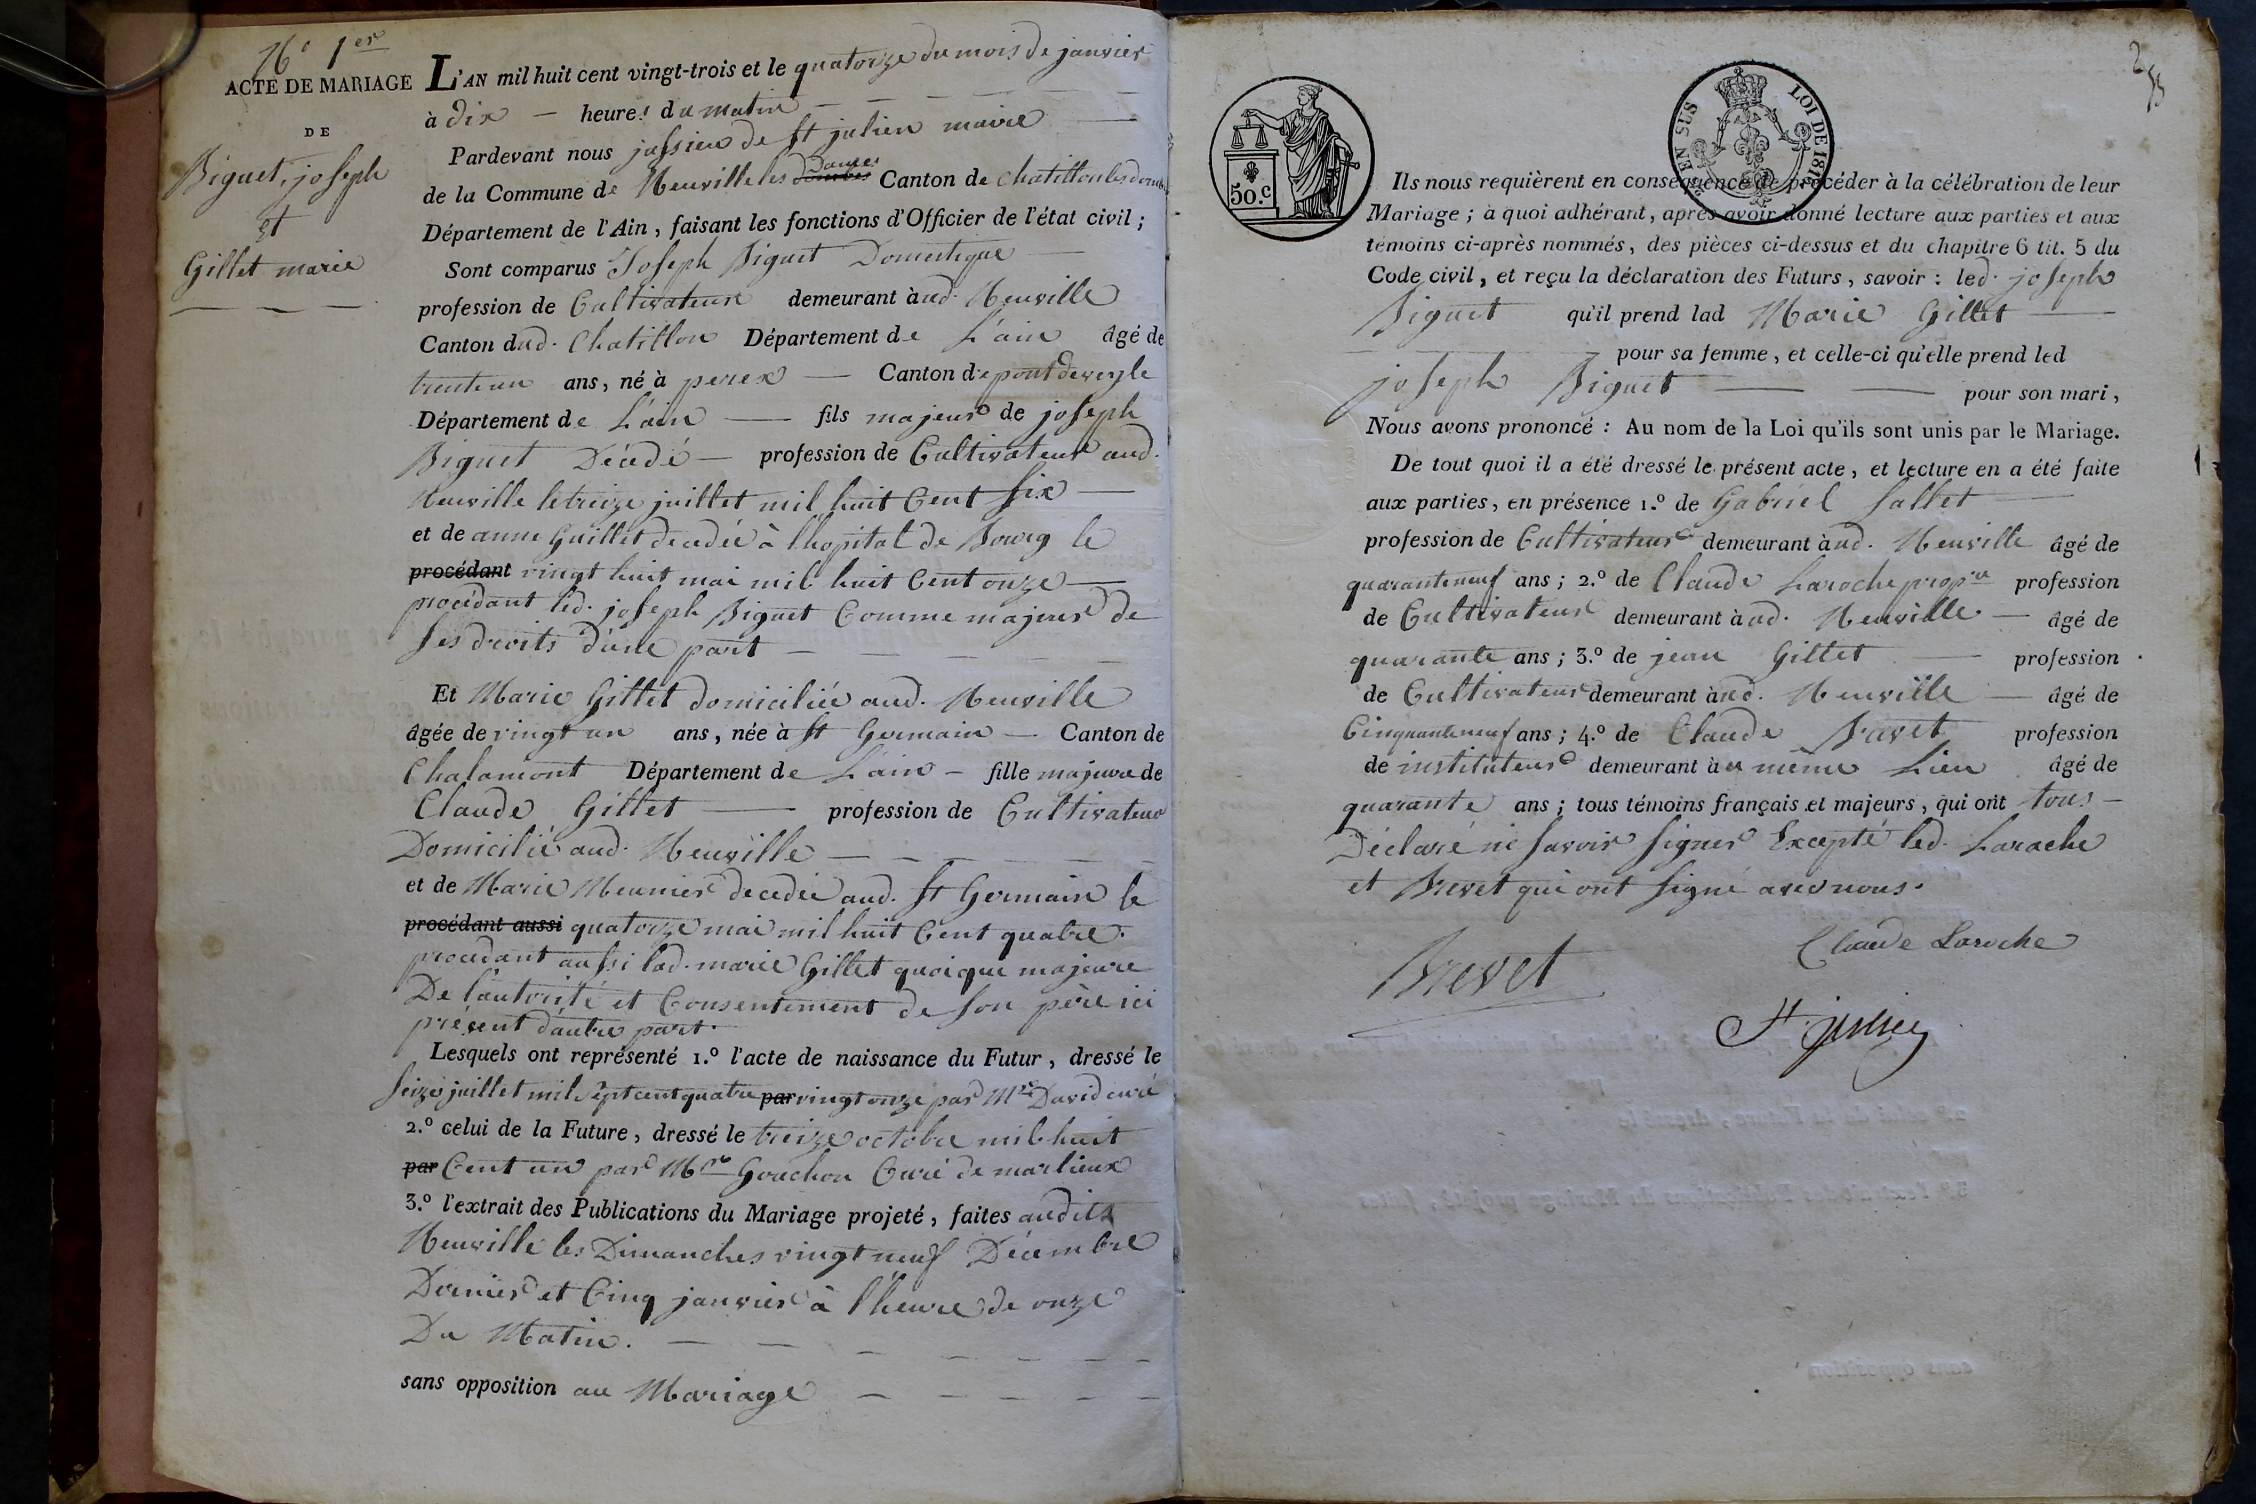 N° 1er
ACTE DE MARIAGE
DE
Biguet, joseph
et
Gillet marie
L'AN mil huit cent vingt-trois et le quatorze du mois de janvier
à dix heures du matin
Pardevant nous jussieu de St julien maire
de la Commune de Neuville les dames dombes Canton de Chatillon les dombes
Département de l'Ain, faisant les fonctions d'Officier de l'état civil;
Sont comparus Joseph Biguet Domestique
profession de Cultivateur demeurant à ud. Neuville
Canton dud. Chatillon Département de L'ain âgé de
trente un ans, né à perex Canton de pont deveyle
Département de L'ain fils majeur de joseph
Biguet Décédé profession de Cultivateur aud.
Neuville le treize juillet mil huit Cent six
et de anne Guillet decedée à l'hopital de Bourg le
procédant vingt huit mai mil huit Cent onze
procédant led. joseph Biguet Comme majeur de
ses droits d'une part
Et Marie Gillet domiciliée aud. Neuville
âgée de vingt un ans, née à St Germain Canton de
Chalamont Département de L'ain fille majeure de
Claude Gillet profession de Cultivateur
Domicilié aud. Neuville
et de Marie Meunier decedée aud. St Germain le
procédant aussi quatorze mai mil huit Cent quatre.
procedant aussi lad. marie Gillet quoique majeure
De l'autorité et Consentement de son père ici
présent d'autre part.
Lesquels ont représenté 1.° l'acte de naissance du Futur, dressé le
seize juillet mil sept cent quatre par vingt onze par Mre David curé
2.° celui de la Future, dressé le treize octobre mil huit
par Cent un par Mre Gouchon Curé de marlieux
3.° l'extrait des Publications du Mariage projeté, faites audits
Neuville les Dimanches vingt neuf Décembre
Dernier et Cinq janvier à l'heure de onze
Du Matin.
sans opposition au Mariage
50.C
EN SUS
LOI DE 1816
2
Ils nous requièrent en conséquence de procéder à la célébration de leur
Mariage; à quoi adhérant, après avoir donné lecture aux parties et aux
témoins ci-après nommés, des pièces ci-dessus et du chapitre 6 tit. 5 du
Code civil, et reçu la déclaration des Futurs, savoir: led. joseph
Biguet qu'il prend lad Marie Gillet
pour sa femme, et celle-ci qu'elle prend led
joseph Biguet pour son mari,
Nous avons prononcé: Au nom de la Loi qu'ils sont unis par le Mariage.
De tout quoi il a été dressé le présent acte, et lecture en a été faite
aux parties, en présence 1.° de Gabriel Sallet
profession de Cultivateur demeurant à ud. Neuville âgé de
quarante neuf ans; 2.° de Claude Laroche propre profession
de Cultivateur demeurant à ud. Neuville âgé de
quarante ans; 3.° de jean Gillet profession
de Cultivateur demeurant à ud. Neuville âgé de
Cinquante neuf ans; 4.° de Claude Brevet profession
de instituteur demeurant à u même Lieu âgé de
quarante ans; tous témoins français et majeurs, qui ont tous
Déclaré ne savoir signer Excepté led. Laroche
et Brevet qui ont signé avec nous.
Claude Laroche
Brevet
St julien